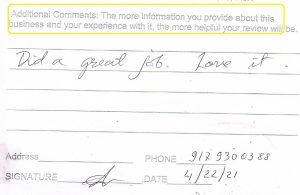 Additional Comments: The more information you provide about this
business and your experience with it, the more helpful your review will be.
Did a great job. Love it.
Address PHONE 917 930 0388
SIGNATURE DATE 4/22/21